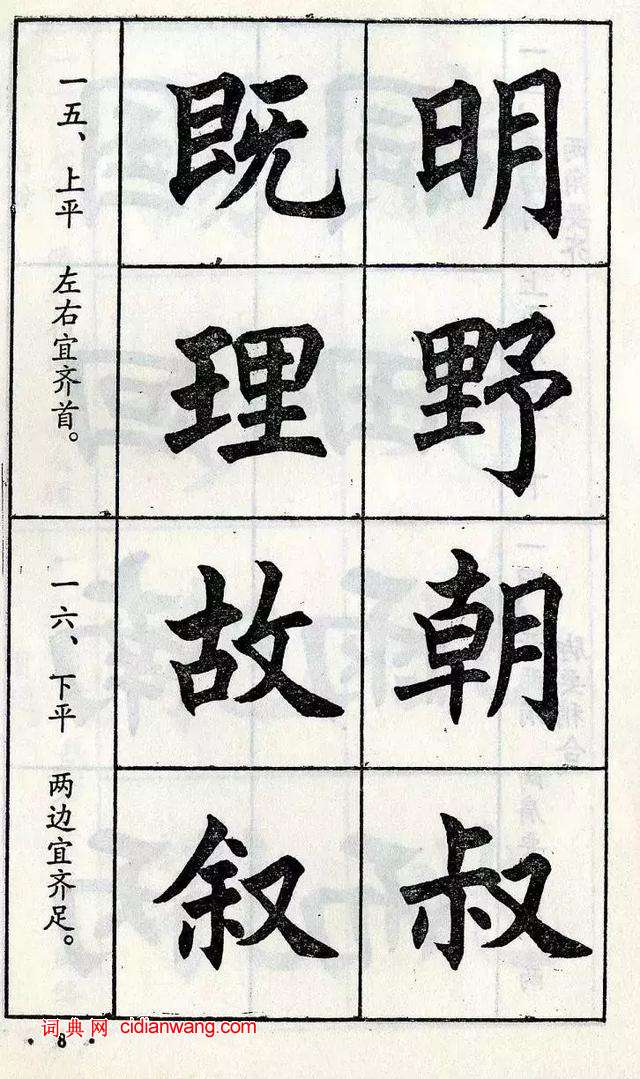 明野
既理
一五、上平 左右宜齐首。
朝叔
故叙
一六、下平 两边宜齐足。
词典网 cidianwang.com
·8·